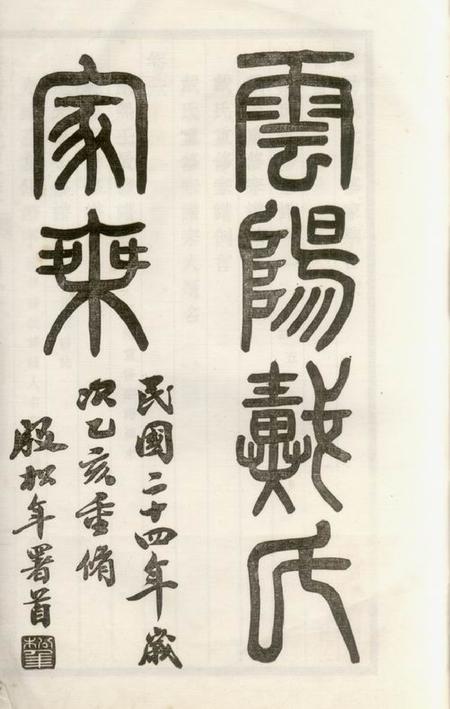 雲陽戴氏
家乘
民國二十四年歲
次乙亥重脩
殷松年署首